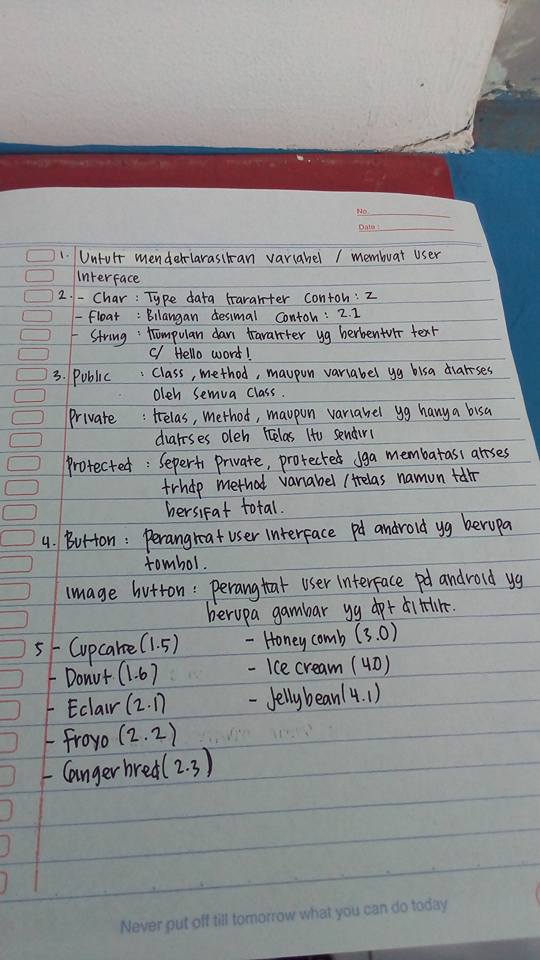 No.
Date :
1. Untuk mendeklarasikan variabel / membuat user
Interface
2. - Char : Type data karakter Contoh : Z
- Float : Bilangan desimal Contoh : 2.1
- String : Kumpulan dari karakter yg berbentuk text
C/ Hello word!
3. Public : Class, method, maupun variabel yg bisa diakses
oleh semua class.
Private : Kelas, Method, maupun variabel yg hanya bisa
diakses oleh kelas itu sendiri
Protected : Seperti private, protected jga membatasi akses
trhdp method variabel / kelas namun tdk
bersifat total.
4. Button : Perangkat user Interface pd android yg berupa
tombol.
Image button : perangkat user Interface pd android yg
berupa gambar yg dpt diklik.
5 - Cupcake (1.5) - Honey comb (3.0)
- Donut (1.6) - Ice cream (4.0)
- Eclair (2.1) - Jellybean (4.1)
- Froyo (2.2)
- Gingerbred (2.3)
Never put off till tomorrow what you can do today